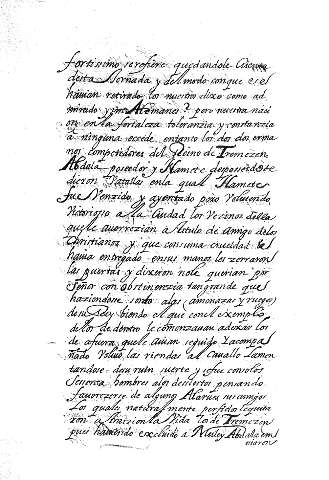 fortissimo serofiere quedandole Cuenta
desta Jornada y del modo conque e es
havian retirado los nuestro dixo como ad
mirado y por Alemanes? pero nuestra naci
on en la fortaleza toleranzia y constanzia
a ninguna exzede. entanto los dos erma
nos Competidores del Reino de Tremezen
Abdala posedor y Hamete deposeido
dieron Batalla en la qual Hamete
fue Venzido, y ayentado pero Volviendo
Victorioso a la Ciudad los Vecinos della
que le aborrezian a titulo de amigo de los
Christianos y que con suma crueldad se
havia entregado en sus manos le zerraron
las puertas y dixeron no le querian por
Señor con obstinazia tan grande que
haziendose sordo a los amenazas y ruegos
de su Rey, biendo el que con el exemplo
de los de dentro le comenzavan a dexar los
de afuera, que le avian seguido y acompa
ñado Volvio las riendas al Cavallo lamen
tandose de su ruin suerte y se fue con solos
Sesenta hombres a los desiertos pensando
favorezerse de algunos Alarves sus amigos
Los quales naturalmente perfidos le quita
ron a traision la Vida los de Tremezen
pues haviendo excluido a Muley Abdala em